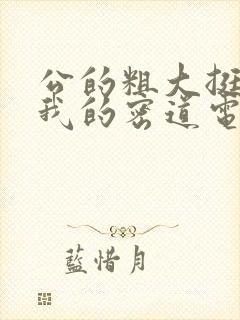 公的粗大挺
我的密道電
藍惜月